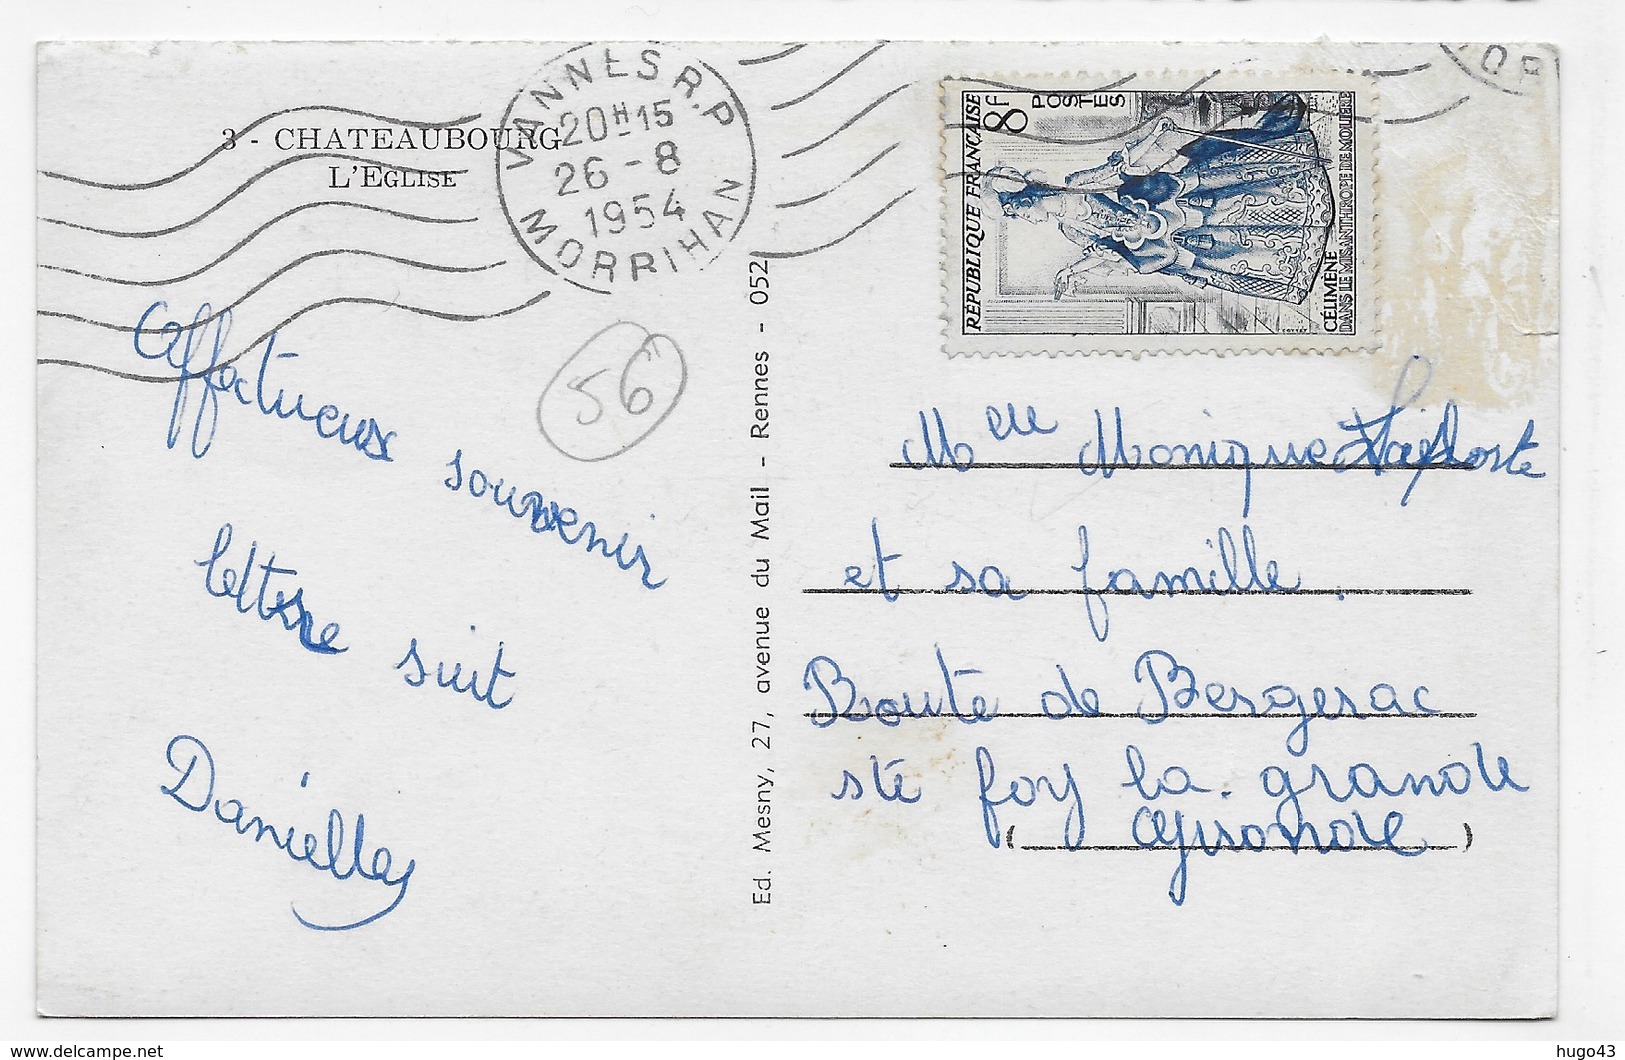 3 - CHATEAUBOURG
L'EGLISE
VANNES R.P
20H15
26 - 8
1954
MORBIHAN
RÉPUBLIQUE FRANÇAISE
8F
POSTES
CÉLIMÈNE
DANS LE MISANTHROPE DE MOLIÈRE
56
Affectueux souvenir
lettre suit
Danielle
Ed. Mesny, 27, avenue du Mail - Rennes - 052
Melle Monique
et sa famille.
Route de Bergerac
Ste foy la grande
( Gironde )
hugo43
delcampe.net